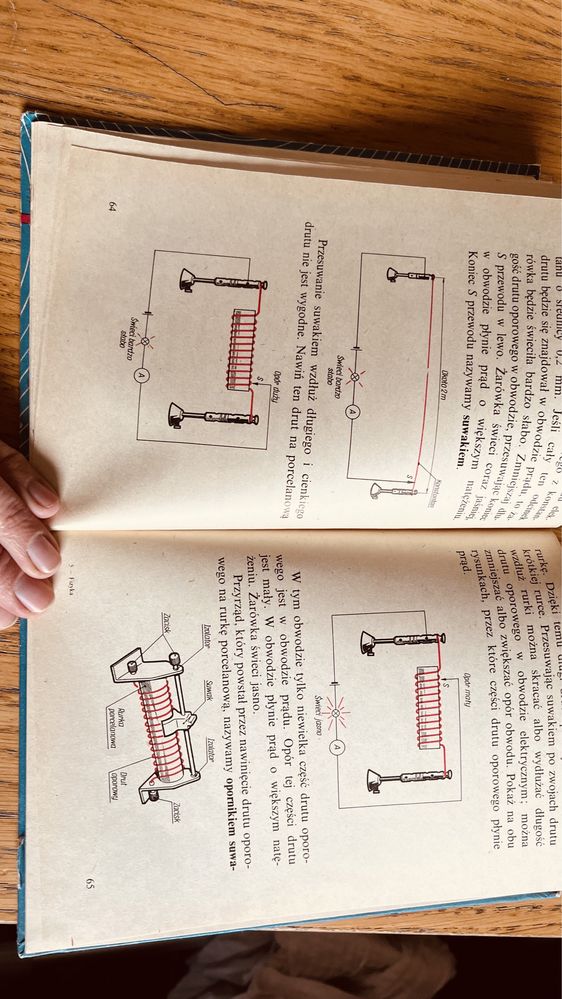 drutu będzie się znajdował w obwodzie prądu, to
rówka będzie świeciła bardzo słabo. Zmniejszaj dłu
gość drutu oporowego w obwodzie, przesuwając koniec
S przewodu w lewo. Żarówka świeci coraz jaśniej,
w obwodzie płynie prąd o większym natężeniu
Koniec S przewodu nazywamy suwakiem.
Około 2m
Konstantan
S
Świeci bardzo
słabo
A
Przesuwanie suwakiem wzdłuż długiego i cienkiego
drutu nie jest wygodne. Nawiń ten drut na porcelanową
Opór duży
S
Świeci bardzo
słabo
A
64
rurkę. Dzięki temu
krótkiej rurce. Przesuwając suwakiem po zwojach drutu
wzdłuż rurki można skracać albo wydłużać długość
drutu oporowego w obwodzie elektrycznym; można
zmniejszać albo zwiększać opór obwodu. Pokaż na obu
rysunkach, przez które części drutu oporowego płynie
prąd.
Opór mały
S
Świeci jasno
A
W tym obwodzie tylko niewielka część drutu oporo-
wego jest w obwodzie prądu. Opór tej części drutu
jest mały. W obwodzie płynie prąd o większym natę-
żeniu. Żarówka świeci jasno.
Przyrząd, który powstał przez nawinięcie drutu oporo-
wego na rurkę porcelanową, nazywamy opornikiem suwa-
Izolator
Suwak
Izolator
Zacisk
Zacisk
Rurka
porcelanowa
Drut
oporowy
Zacisk
5 – Fizyka
65